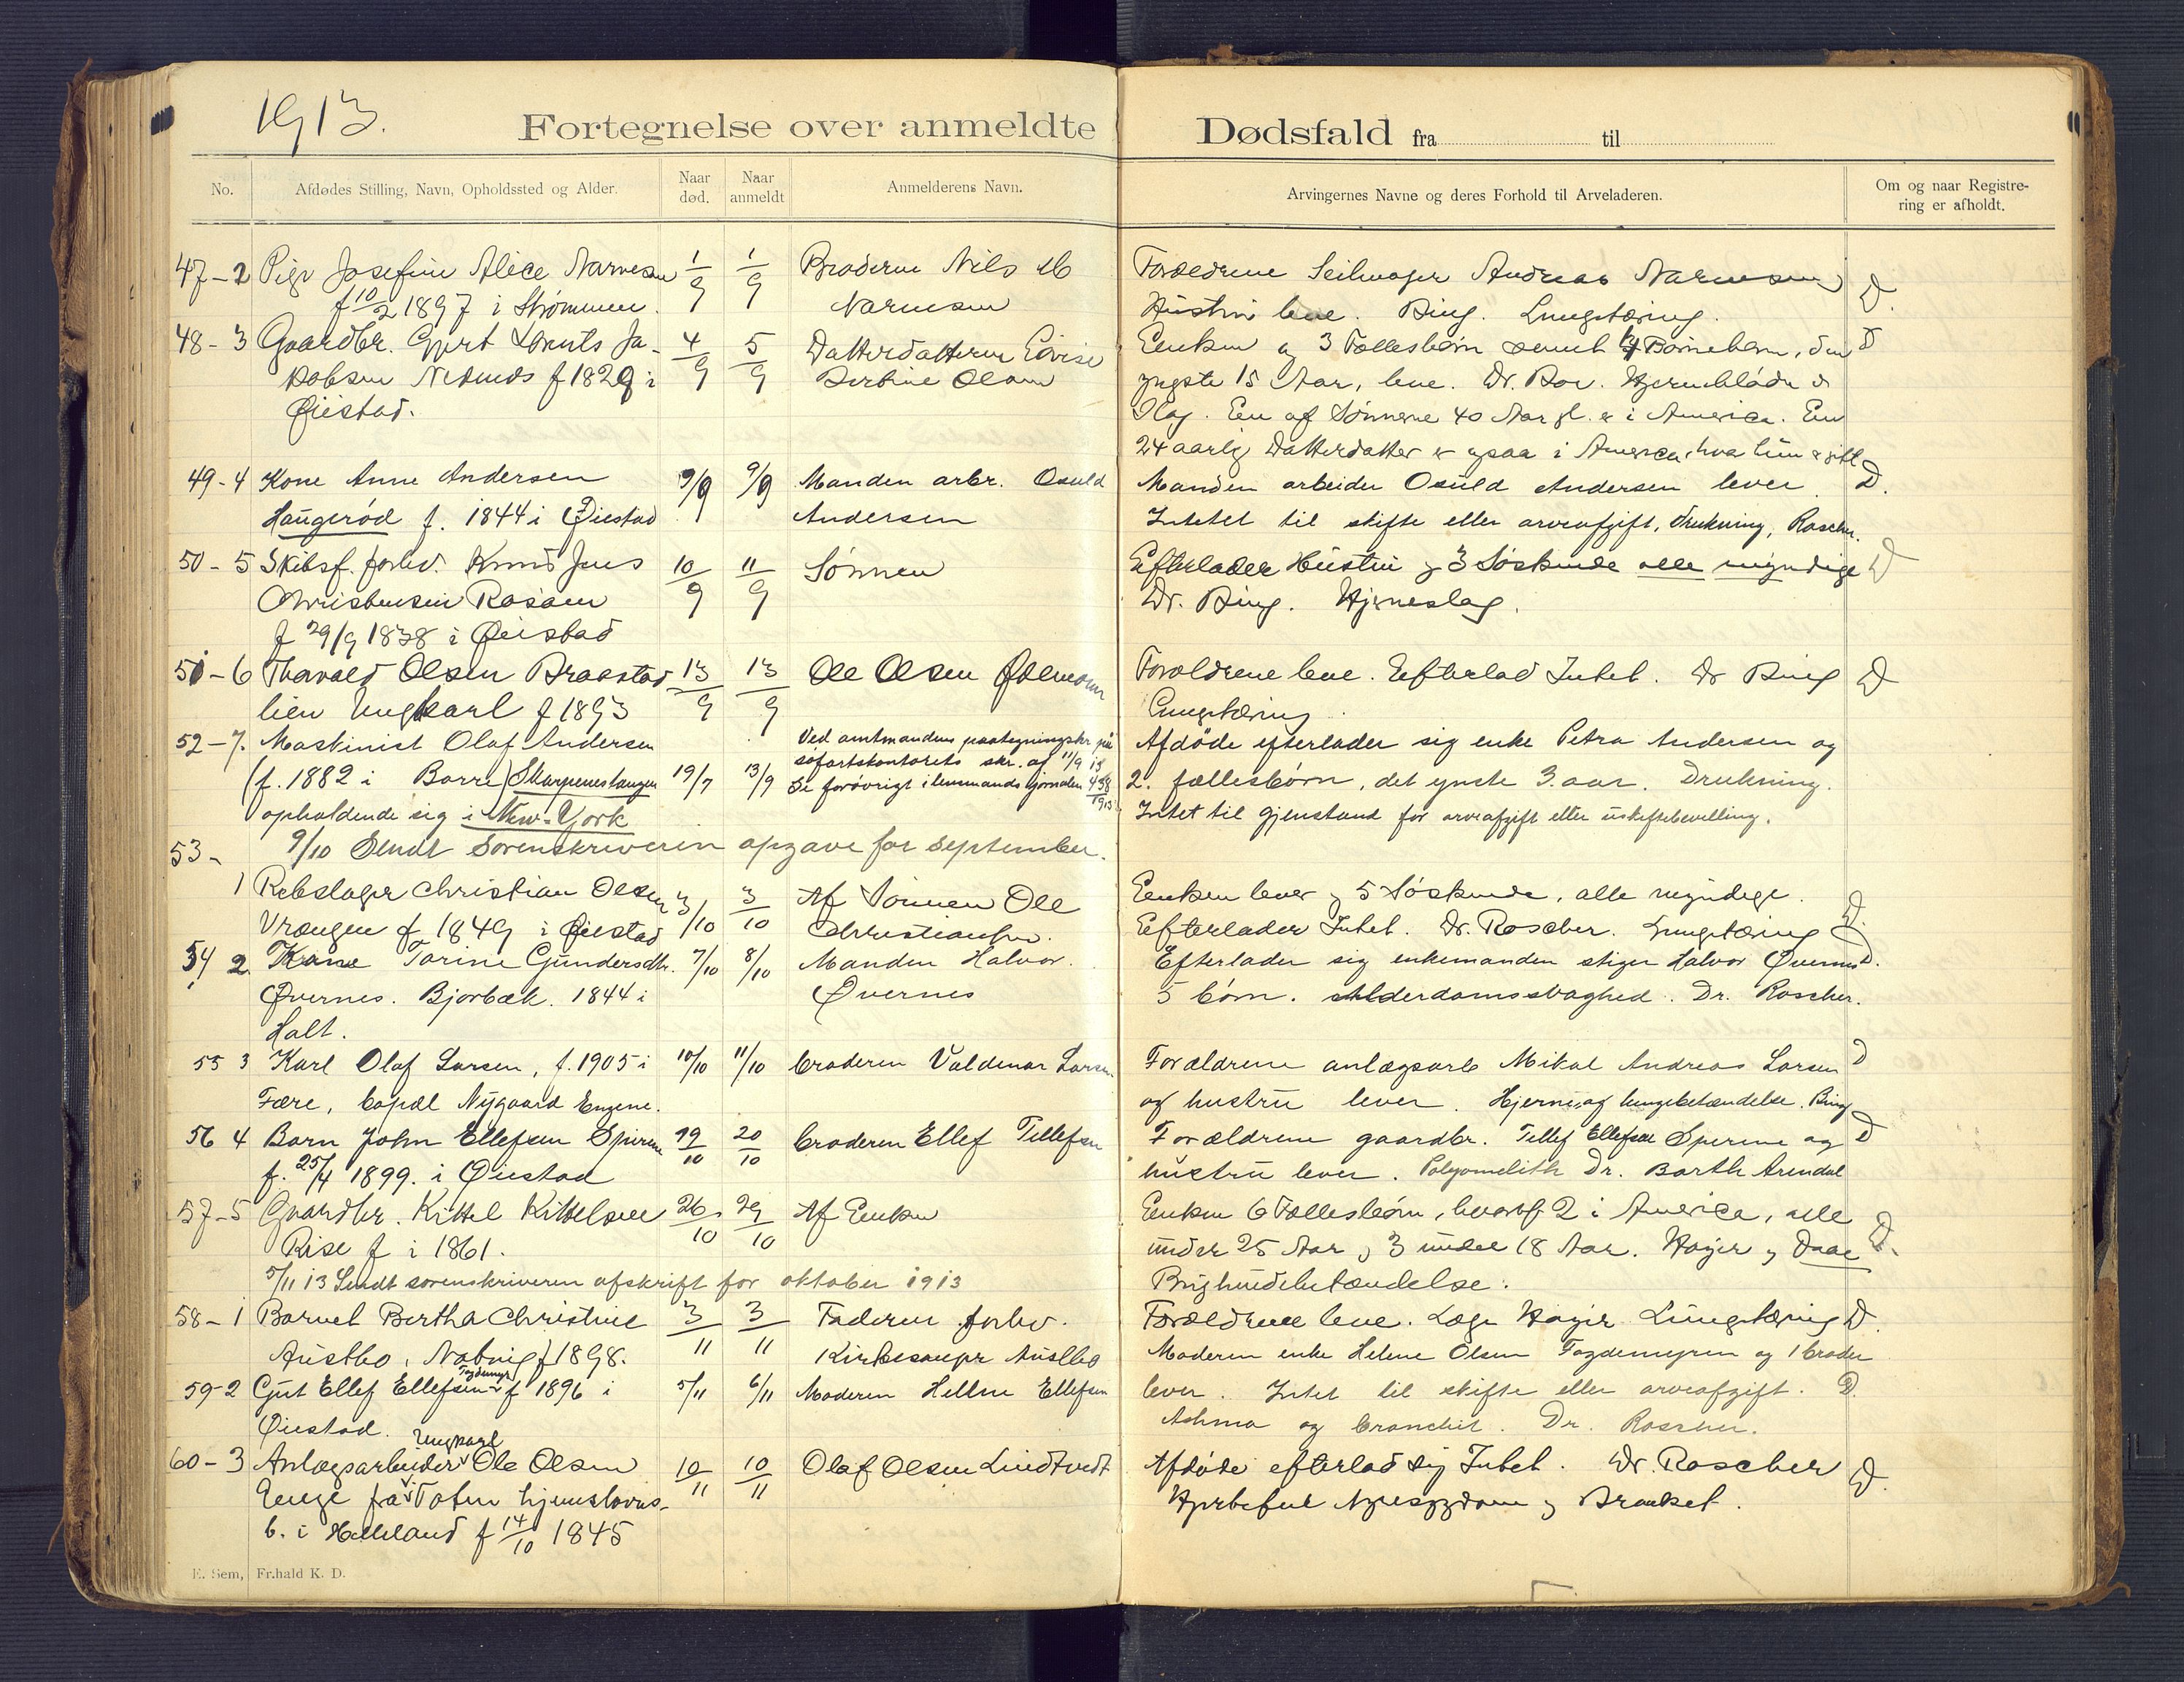 1913.
Fortegnelse over anmeldte Dødsfald fra til
No. Afdødes Stilling, Navn, Opholdssted og Alder. Naar død. Naar anmeldt Anmelderens Navn. Arvingernes Navne og deres Forhold til Arveladeren. Om og naar Registrering er afholdt.
47-2 Pige Josefine Alice Narvesen 1/9 1/9 Broderen Nils
f 10/2 1897 i Strømmen. Narvesen
Forældrene Seilmager Andreas Narvesen
Hustru leve. Bing. Lungetæring. D.
48-3 Gaardbr. Gjert Knuts Ja- 4/9 5/9 Datterdatteren
kobsen Nedenes f 1829 i Olsen
Øiestad.
Enken og 3 Fællesbørn samt Børnebørn, den D
yngste 15 Aar, leve. Dr. Hjerneblødn
Slag. En af Sønnerne 40 Aar gl. er i America. En
24 aarlig Datterdatter er ogsaa i America, hvor hun er gift
49-4 Kone Anne Andersen 9/9 9/9 Manden arbr. Osuld
Haugerød f. 1844 i Øiestad Andersen
Manden arbeider Osuld Andersen lever. D.
Intet til skifte eller arveafgift, Drukning, Roscher.
50-5 Skibsf. forhv. Knud Jens 10/9 11/9 Sønnen
Christensen
f 29/9 1838 i Øiestad
Efterlader Hustru og 3 Søskende alle myndige D
Dr. Bing. Hjerneslag.
51-6 Thorvald Olsen Braastad 13/9 13/9 Ole Olsen
lien Ungkarl f 1893
Forældrene leve. Efterlod Intet. Dr Bing D
Lungetæring.
52-7. Maskinist Olaf Andersen Ved amtmandens paategningskr på
(f. 1882 i Borre) Skarpnestangen 19/7 13/9 søfartskontorets skr. af 11/9 13
opholdende sig i New-York Se forøvrigt i lensmands jornalen 438/1913
Afdøde efterlader sig enke Petra Andersen og
2. fællesbørn, det ynste 3. aar. Drukning.
Intet til gjenstand for arveafgift eller uskiftebevilling.
53- 9/10 Sendt Sorenskriveren opgave for September.
1 Rebslager Christian Olsen 3/10 3/10 Af Sønnen Ole
Vrængen f 1849 i Øiestad Christiansen.
Enken lever og 5 Søskende, alle myndige.
Efterlader Intet. Dr. Roscher. Lungetæring D.
54 2. Kone Torine Gundersdtr. 7/10 8/10 Manden Halvor.
Øvernes. Bjorbæk. 1844 i Øvernes
Holt.
Efterlader sig enkemanden stiger Halvor Øvernes D.
5 børn. Alderdomssvaghed. Dr. Roscher.
55 3 Karl Olaf Larsen, f. 1905 i 10/10 11/10 broderen Valdemar Larsen
Fære, Nygaard Engene.
Forældrene anlægsarb Mikal Andreas Larsen D
og hustru lever. Hjerne, og lungebetændelse. Bing
56 4 Barn John Ellefsen Spirene 19/10 20/10 broderen Ellef Tellefsen
f. 25/4 1899. i Øiestad
Forældrene gaardbr. Tellef Ellefsen Sperene og D
hustru lever. Polyomelith Dr. Barth Arendal
57-5 Gaardbr. Kittel Kittelsen 26/10 29/10 Af Enken
Rise f i 1861.
Enken 6 Fællesbørn, hvoraf 2 i America, alle
under 25 Aar og 3 under 18 Aar. Høyer og Daae D.
5/11 13 Sendt sorenskriveren afskrift for oktober 1913 Brysthindebetændelse.
58-1 Barnet Bertha Christine 3/11 3/11 Faderen forhv.
Austbo, f 1898. Kirkesanger Austbo
Forældrene leve. Læge Høyer Lungetæring D.
59-2 Gut Ellef Ellefsen f 1896 i 5/11 6/11 Moderen Hellene Ellefsen
Øiestad.
Moderen enke Helene Olsen Togdemyren og 1 broder
lever. Intet til skifte eller arveafgift. D.
Astma og bronchit. Dr. Roscher.
60-3 Anlægsarbeider Ungkarl Ole Olsen 10/11 10/11 Olaf Olsen Lindtvedt
Enge fra Toten hjemstavns-
b. i Helleland f 14/10 1845
Afdøde efterlod sig Intet. Dr. Roscher D.
Hjertefeil Nyresygdom og Bronket.
E. Sem, Fr.hald K. D.